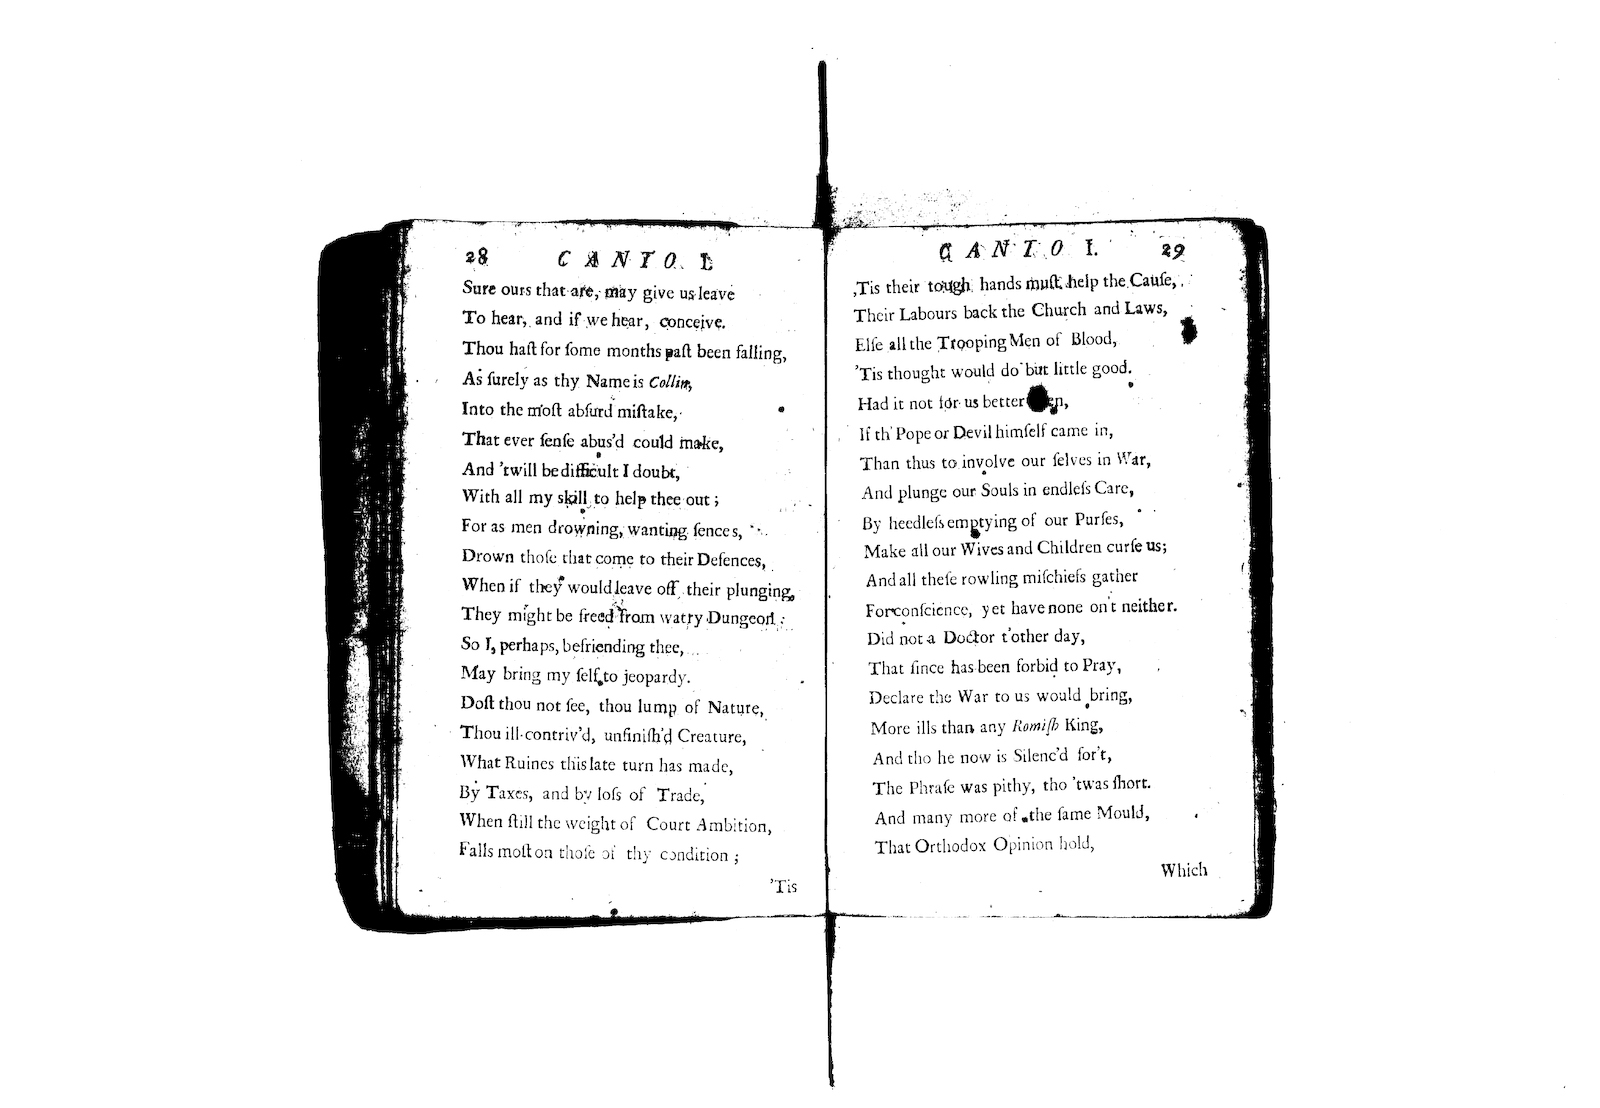 28 CANTO I.
Sure ours that are, may give us leave
To hear, and if we hear, conceive.
Thou haſt for ſome months paſt been falling,
As ſurely as thy Name is Collin,
Into the moſt abſurd miſtake,
That ever ſenſe abus'd could make,
And 'twill be difficult I doubt,
With all my skill to help thee out;
For as men drowning, wanting ſences,
Drown thoſe that come to their Defences,
When if they would leave off their plunging,
They might be freed from watry Dungeon:
So I, perhaps, befriending thee,
May bring my ſelf to jeopardy.
Doſt thou not ſee, thou lump of Nature,
Thou ill-contriv'd, unfiniſh'd Creature,
What Ruines this late turn has made,
By Taxes, and by loſs of Trade,
When ſtill the weight of Court Ambition,
Falls moſt on thoſe of thy condition;
'Tis
CANTO I. 29
'Tis their tough hands muſt help the Cauſe,
Their Labours back the Church and Laws,
Elſe all the Trooping Men of Blood,
'Tis thought would do but little good.
Had it not for us better
If th' Pope or Devil himſelf came in,
Than thus to involve our ſelves in War,
And plunge our Souls in endleſs Care,
By heedleſs emptying of our Purſes,
Make all our Wives and Children curſe us;
And all theſe rowling miſchiefs gather
For conſcience, yet have none on't neither.
Did not a Doctor t'other day,
That ſince has been forbid to Pray,
Declare the War to us would bring,
More ills than any Romiſh King,
And tho he now is Silenc'd for't,
The Phraſe was pithy, tho 'twas ſhort.
And many more of the ſame Mould,
That Orthodox Opinion hold,
Which